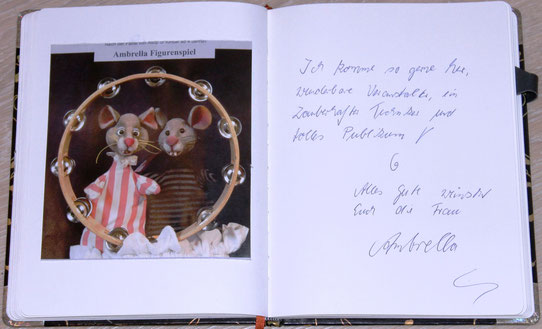 Ambrella Figurenspiel
Ich komme so gerne her,
wunderbare Veranstalter, ein
Zauberhaftes und
tolles Publikum !
Alles Gute wünscht
Euch die Frau
Ambrella